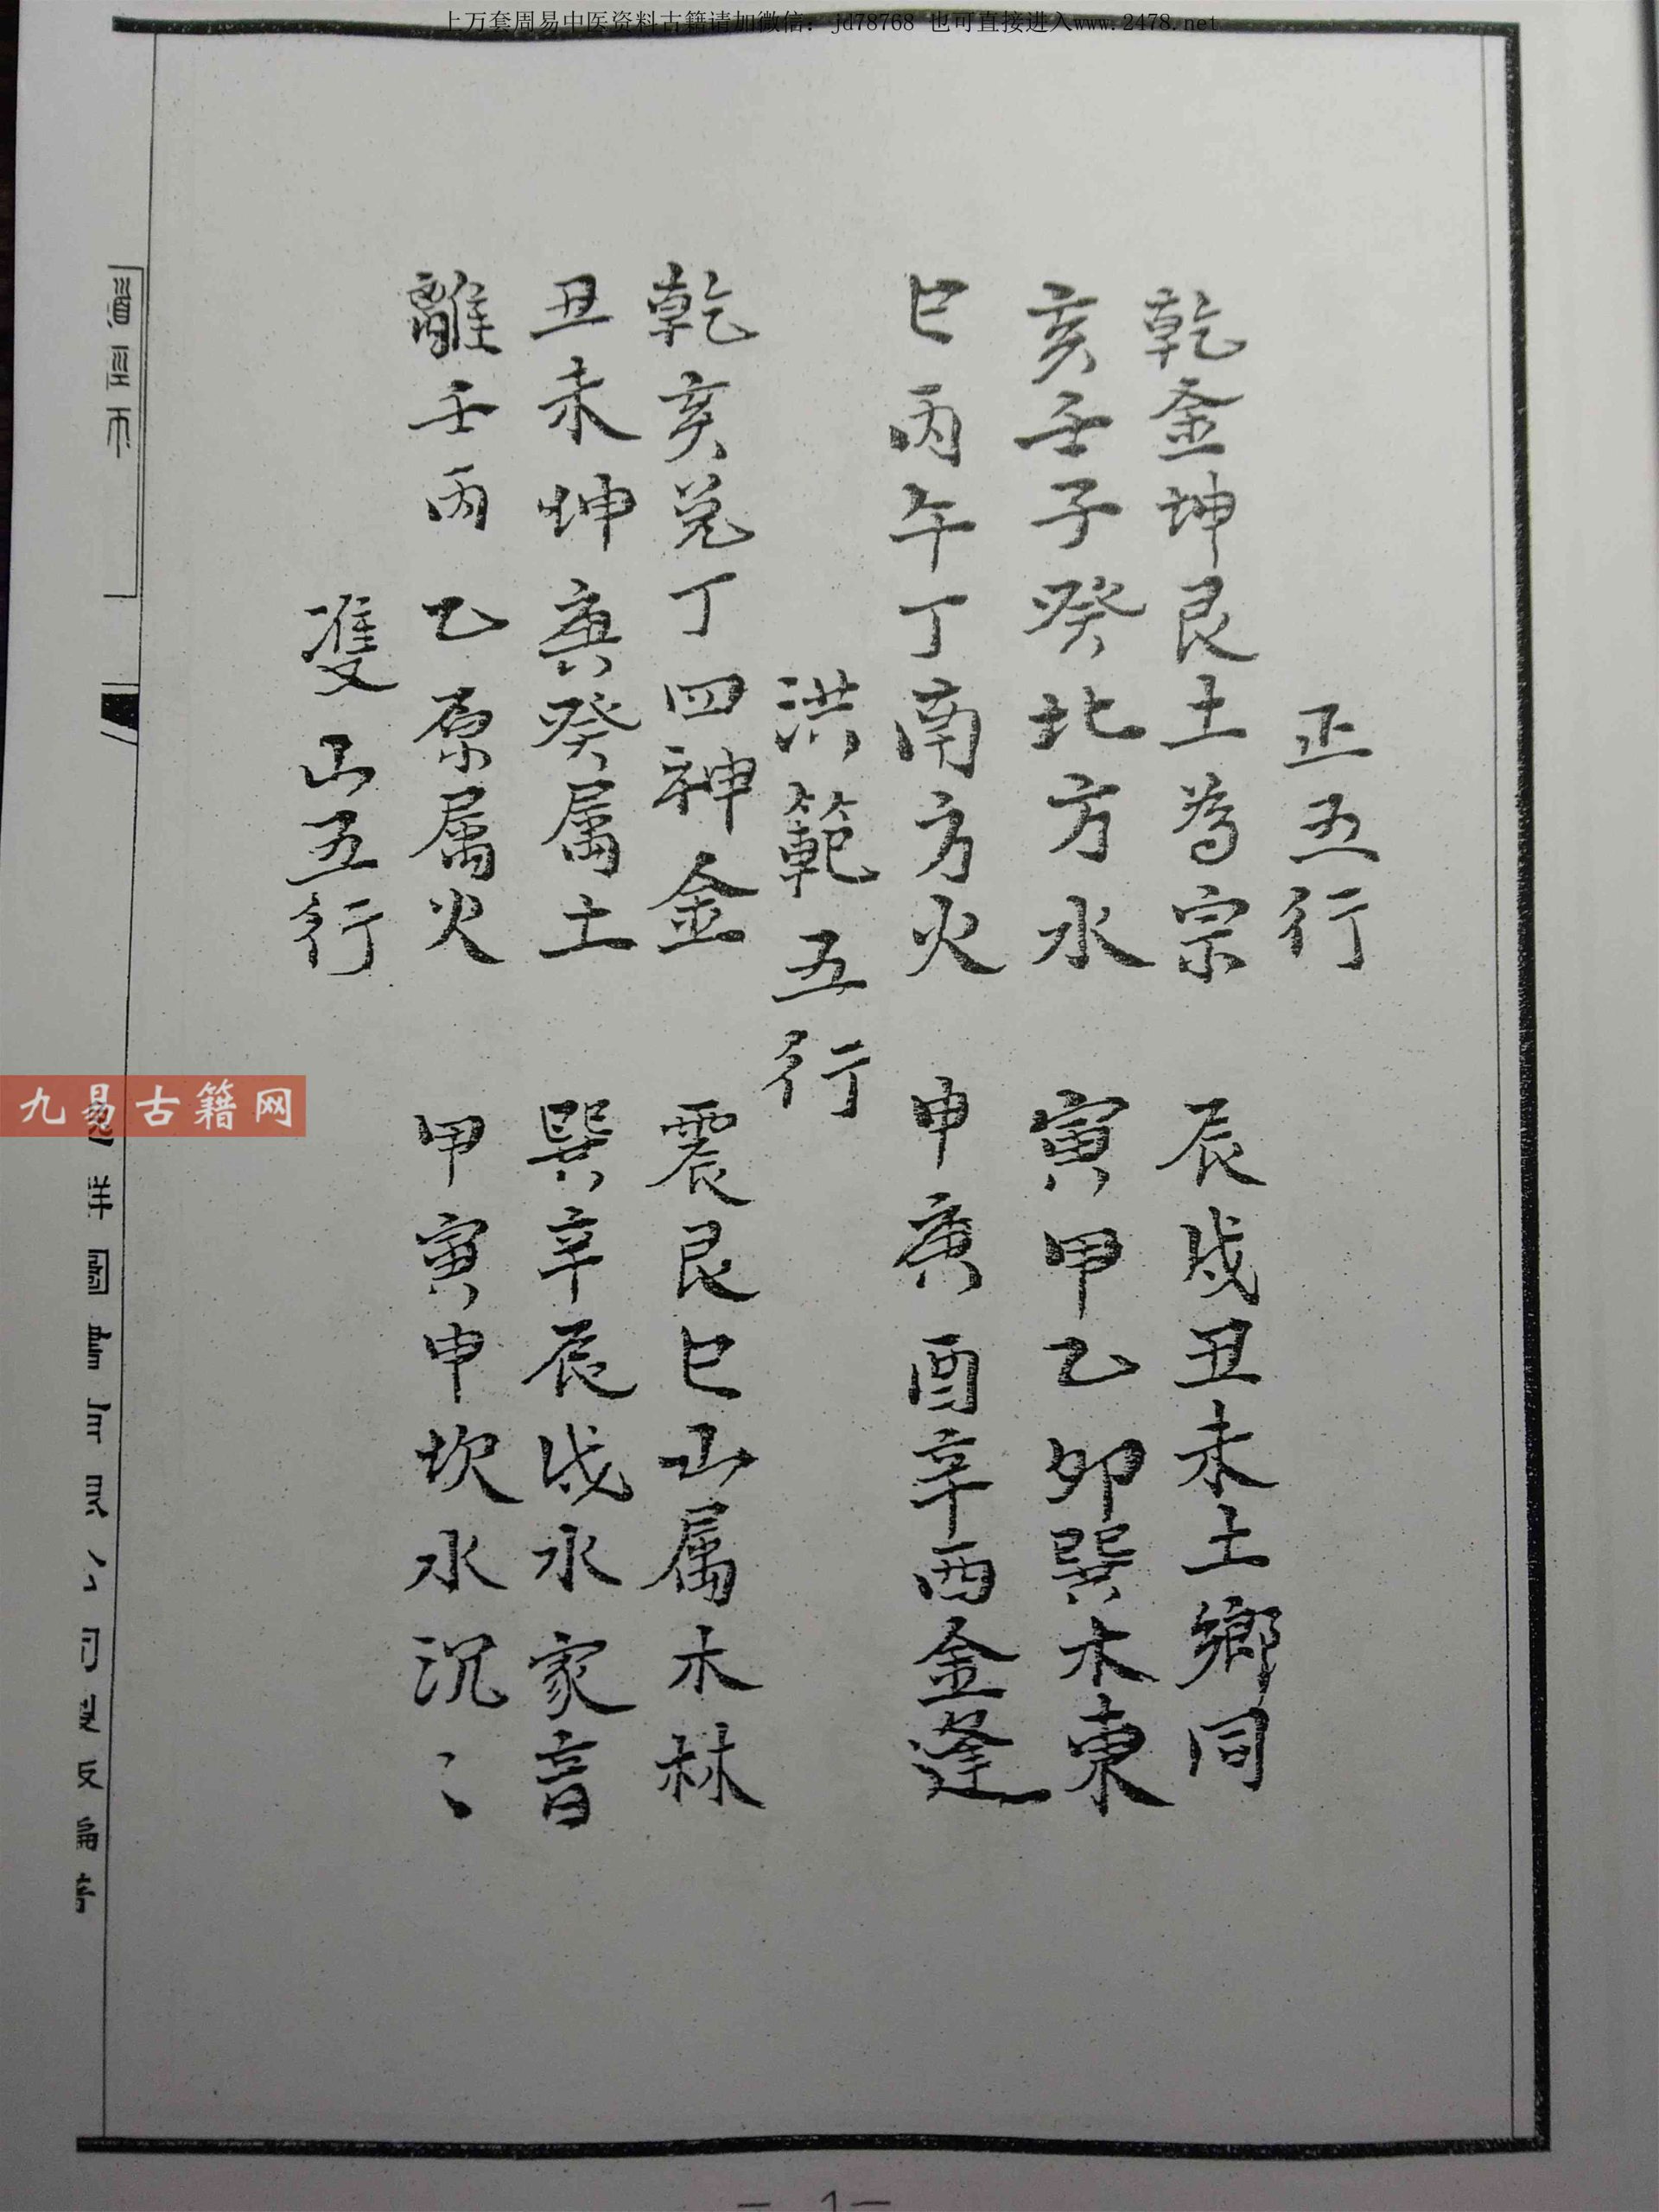 上万套周易中医资料古籍请加微信：jd78768 也可直接进入www.2478.net
正五行
乾金坤艮土為宗 辰戌丑未土鄉同
亥壬子癸北方水 寅甲乙卯巽木東
巳丙午丁南方火 申庚酉辛西金逢
洪範五行
乾亥兌丁四神金 震艮巳山属木林
丑未坤庚癸属土 巽辛辰戌水家音
離壬丙乙原属火 甲寅申坎水沉〻
雙山五行
九易古籍网
— 1 —